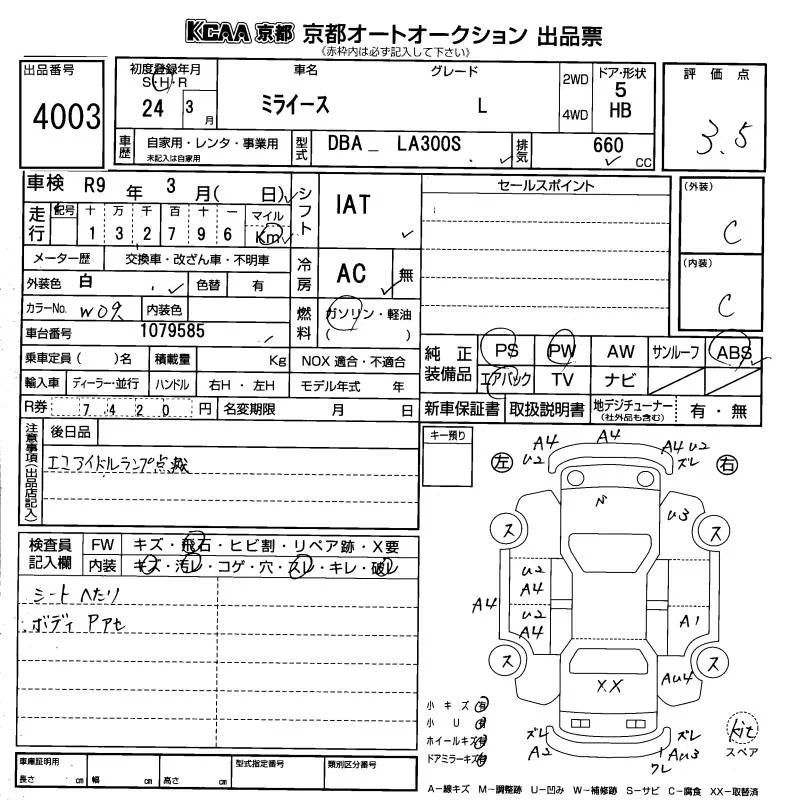 KCAA 京都 京都オートオークション 出品票
(赤枠内は必ず記入して下さい)
出品番号
4003
初度登録年月
S・H・R
24 3 月
車名
ミライース
グレード
L
2WD
4WD
ドア・形状
5
HB
評価点
3.5
車歴
自家用・レンタ・事業用
未記入は自家用
型式
DBA_ LA300S
排気
660 cc
車検 R9 年 3 月( 日)
走行
記号 十 万 千 百 十 一 マイル
1 3 2 7 9 6 Km
メーター歴 交換車・改ざん車・不明車
外装色 白 色替 有
カラーNo. W09 内装色
車台番号 1079585
乗車定員( )名 積載量 Kg NOX 適合・不適合
輸入車 ディーラー・並行 ハンドル 右H・左H モデル年式 年
R券 7 4 2 0 円 名変期限 月 日
シフト IAT
冷房 AC 無
燃料 ガソリン・軽油
( )
セールスポイント
(外装)
C
(内装)
C
純正装備品
PS PW AW サンルーフ ABS
エアバック TV ナビ
新車保証書 取扱説明書 地デジチューナー
(社外品も含む)
有・無
注意事項(出品店記入)
後日品
エコアイドルランプ点滅
検査員記入欄
FW キズ・飛石・ヒビ割・リペア跡・X要
内装 キズ・汚レ・コゲ・穴・スレ・キレ・破レ
シートへたり
ボディ Pアセ
キー預り
左
右
A4
U2
A4
A4 U2
ズレ
N
U3
ス
ス
U2
A4
U2
A4
A4
A1
ス
ス
XX
AU4
ズレ
A2
ズレ
AU3
ワレ
kit
スペア
小キズ 有
小U 有
ホイールキズ 有
ドアミラーキズ 有
車庫証明用
長さ cm 幅 cm 高さ cm
型式指定番号
類別区分番号
A−線キズ M−調整跡 U−凹み W−補修跡 S−サビ C−腐食 XX−取替済